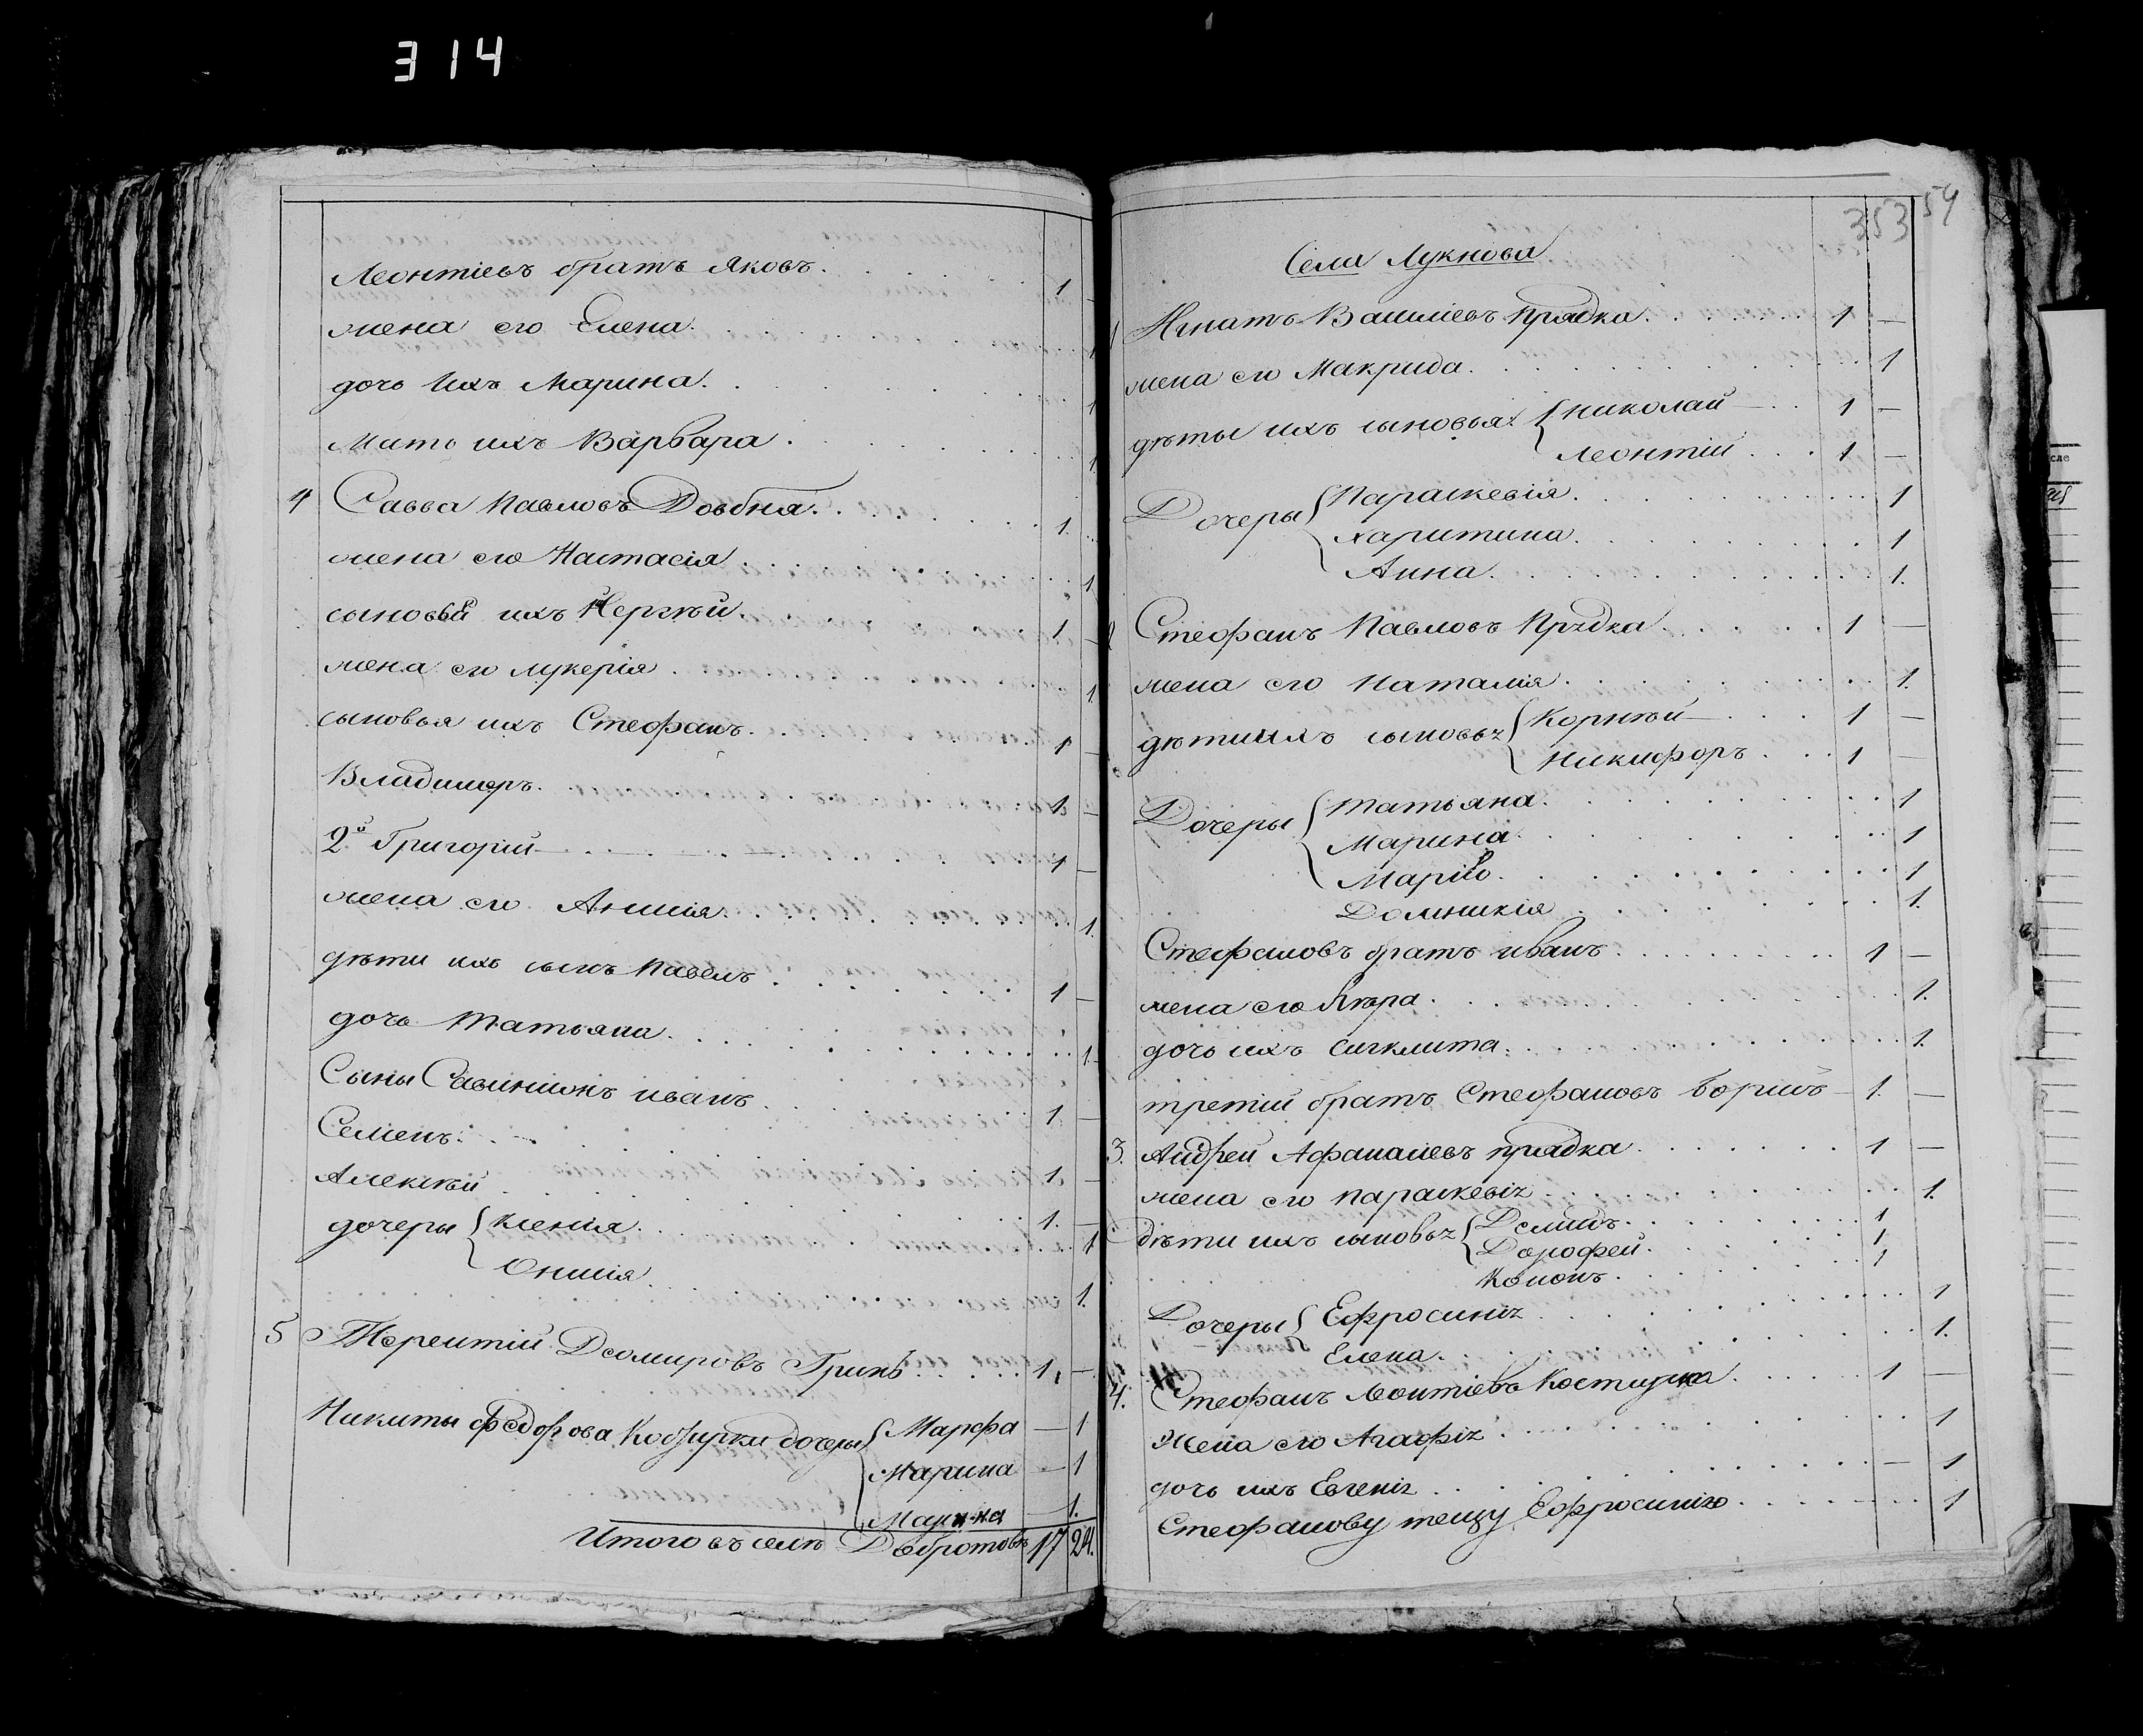 314
Леонтіевъ братъ Яковъ. 1 —
жена его Елена. 1
дочь Ихъ Марина. 1
Мать ихъ Варвара. 1
4 Савва Павловъ Довбня. 1
жена его Настасія 1
сыновья ихъ Сергѣй. 1 —
жена его лукерія. 1
сыновья ихъ Стефанъ. 1 —
Владимеръ. 1 —
2й Григорій 1 —
жена его Анисія. 1.
дѣти ихъ сынъ Павелъ 1 —
дочь Татьяна. 1
Сыны иванъ 1 —
Семенъ. 1 —
Алексѣй 1. —
дочеры Ксенія. 1
Онисія 1.
5 Терентій Гринь. 1, —
Никиты Федорова дочеры Марфа — 1
Марина — 1
— 1.
Итого въ селѣ Добротовѣ 17 24.
353 54
Села Лукнова
1 Игнатъ Василіевъ прядка. 1 —
жена его Макрида. 1
дѣты ихъ сыновья Николай 1 —
Леонтій 1 —
Дочеры Параскевія. 1
харитина. 1
Анна. 1.
2 Стефанъ Павловъ Прядка. 1 —
жена его Наталія. 1.
дѣти ихъ сыновья Корнѣй 1 —
Никифоръ. 1 —
Дочеры Татьяна. 1
Марина. 1
Марія. 1
Домникія 1.
Стефановъ братъ иванъ. 1 —
жена его Вѣра. 1.
дочь ихъ сигклита. 1.
третій братъ Стефановъ Борисъ 1. —
3. Андрей Афанасіевъ прядка. 1 —
жена его параскевія 1.
дѣти ихъ сыновья Демидъ. 1
Дорофей. 1
Кононъ. 1
Дочеры Ефросинія 1
Елена. 1.
4. Стефанъ Леонтіевъ 1 —
Жена его Агафія 1
дочь ихъ Евгенія — 1
Стефанову тещу Ефросинію 1